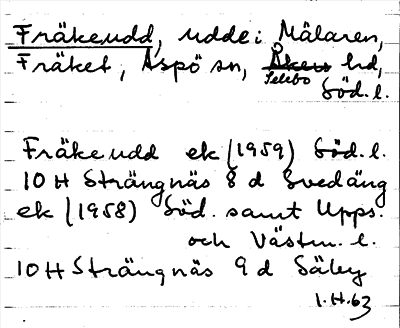 Fräkeudd, udde i Mälaren,
Fräket, Aspö sn, Åkers hd,
Selebo
Söd. l.
Fräkeudd ek (1959) Söd. l.
10 H Strängnäs 8 d Svedäng
ek (1958) Söd. samt Upps.
och Västm. l.
10 H Strängnäs 9 d Säby
I.H.63